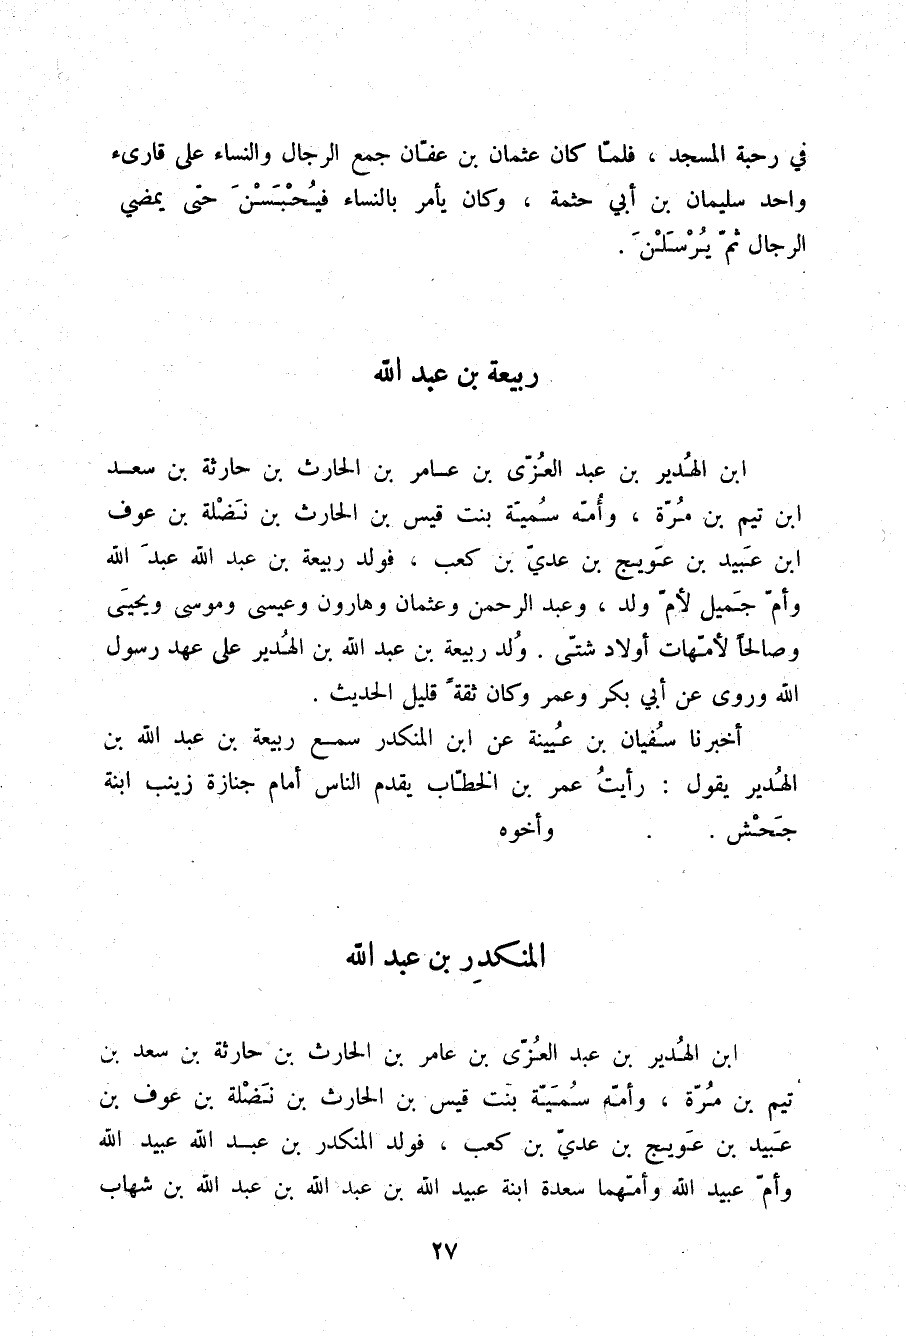 في رحبة المسجد ، فلمّا كان عثمان بن عفّان جمع الرجال والنساء على قارىء
واحد سليمان بن أبي حثمة ، وكان يأمر بالنساء فيُحْبَسْنَ حتّى يمضي
الرجال ثمّ يُرْسَلْنَ .
ربيعة بن عبد الله
ابن الهُدير بن عبد العُزّى بن عامر بن الحارث بن حارثة بن سعد
ابن تيم بن مُرّة ، وأُمّه سُميّة بنت قيس بن الحارث بن نَضْلة بن عوف
ابن عَبيد بن عَويج بن عديّ بن كعب ، فولد ربيعة بن عبد الله عبدَ الله
وأمّ جَميل لأمّ ولد ، وعبد الرحمن وعثمان وهارون وعيسى وموسى ويحيَى
وصالحاً لأمّهات أولاد شتّى . وُلد ربيعة بن عبد الله بن الهُدير على عهد رسول
الله وروى عن أبي بكر وعمر وكان ثقةً قليل الحديث .
أخبرنا سُفيان بن عُيينة عن ابن المنكدر سمع ربيعة بن عبد الله بن
الهُدير يقول : رأيتُ عمر بن الخطّاب يقدم الناس أمام جنازة زينب ابنة
جَحْش . . وأخوه
المنكدِر بن عبد الله
ابن الهُدير بن عبد العُزّى بن عامر بن الحارث بن حارثة بن سعد بن
تيم بن مُرّة ، وأمّه سُمَيّة بنت قيس بن الحارث بن نَضْلة بن عوف بن
عَبيد بن عَويج بن عديّ بن كعب ، فولد المنكدر بن عبد الله عبيد الله
وأمّ عبيد الله وأمّهما سعدة ابنة عبيد الله بن عبد الله بن عبد الله بن شهاب
٢٧